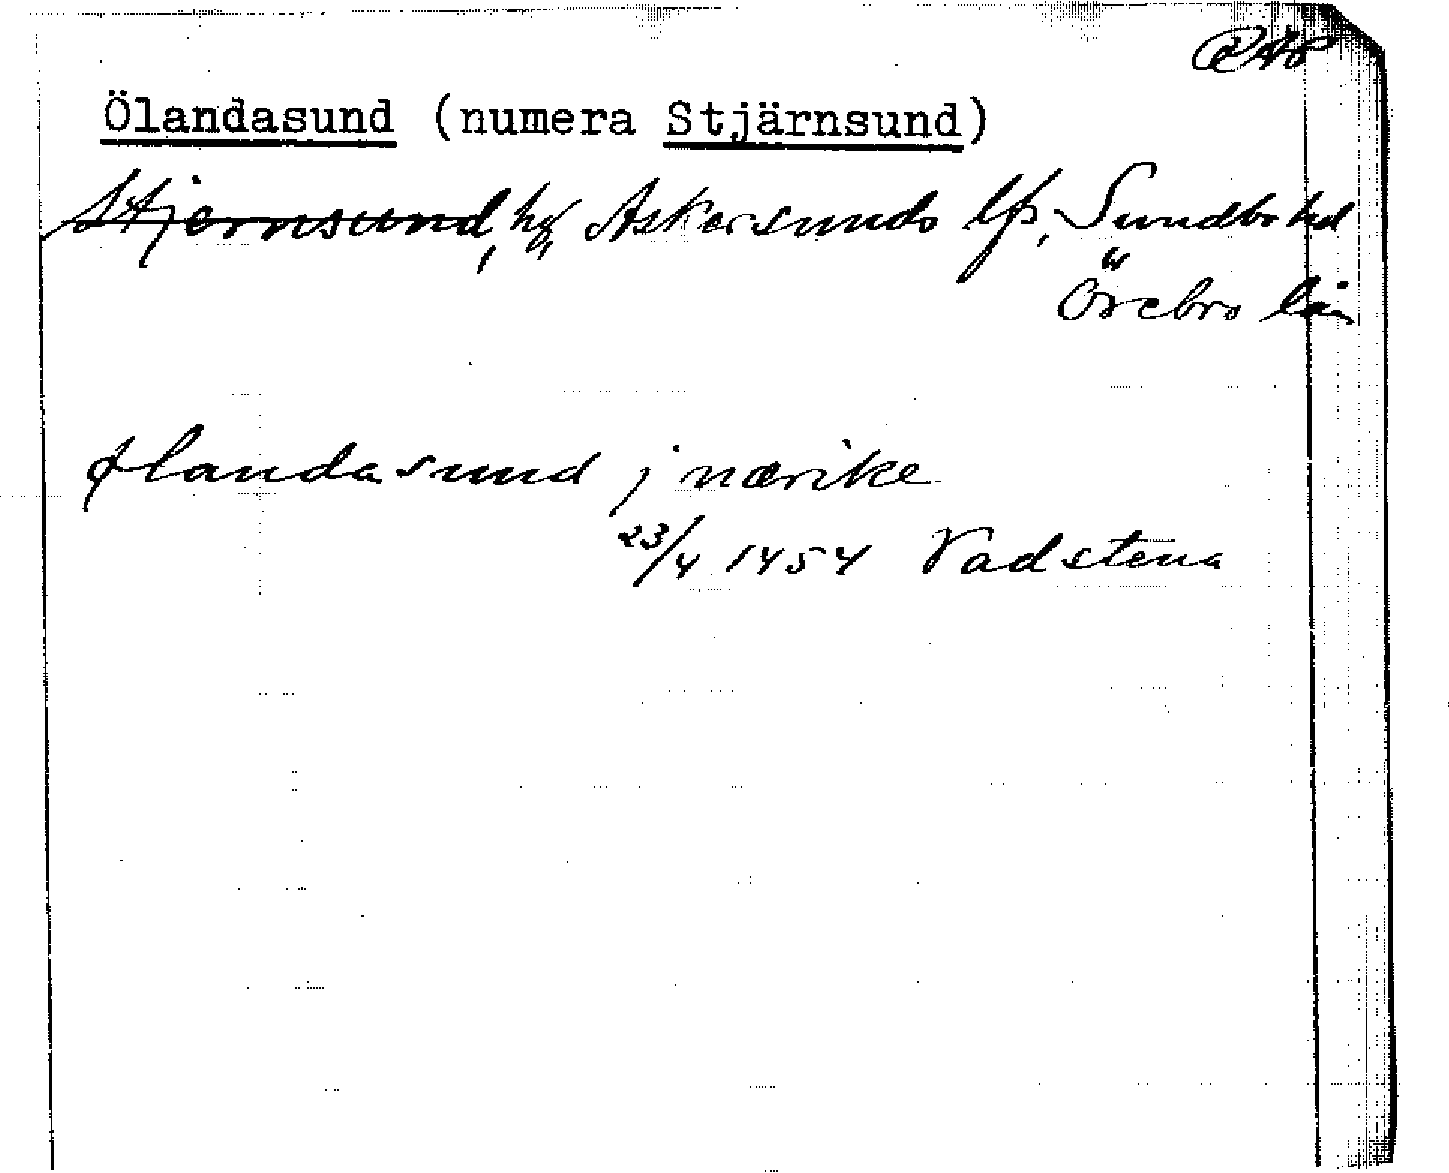 RAp
Ölandasund (numera Stjärnsund)
Stjernsund, hg, Askersunds lfs, Sundbo hd
Örebro län
Ølandasund j nærike
23/4 1454 Vadstena